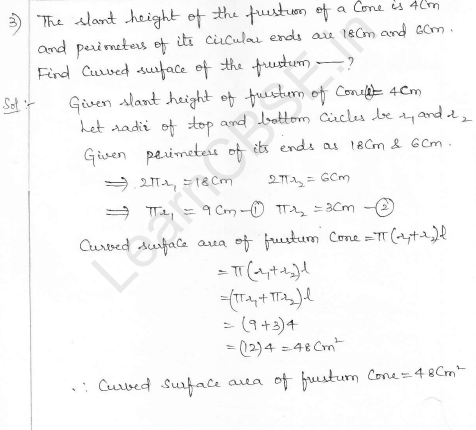 3) The slant height of the frustron of a Cone is 4Cm
and perimeters of its circular ends are 18Cm and 6Cm.
Find Curved surface of the frustum — ?
Sol :- Given slant height of frustum of Cone(l) = 4Cm
Let radii of top and bottom Circles be r₁ and r₂
Given perimeters of its ends as 18Cm & 6Cm.
⇒ 2πr₁ = 18Cm 2πr₂ = 6Cm
⇒ πr₁ = 9Cm –① πr₂ = 3Cm –②
Curved surface area of frustum Cone = π(r₁+r₂)l
= π(r₁+r₂)l
= (πr₁+πr₂)l
= (9+3)4
= (12)4 = 48Cm²
∴ Curved surface area of frustum Cone = 48Cm²
LearnCBSE.in